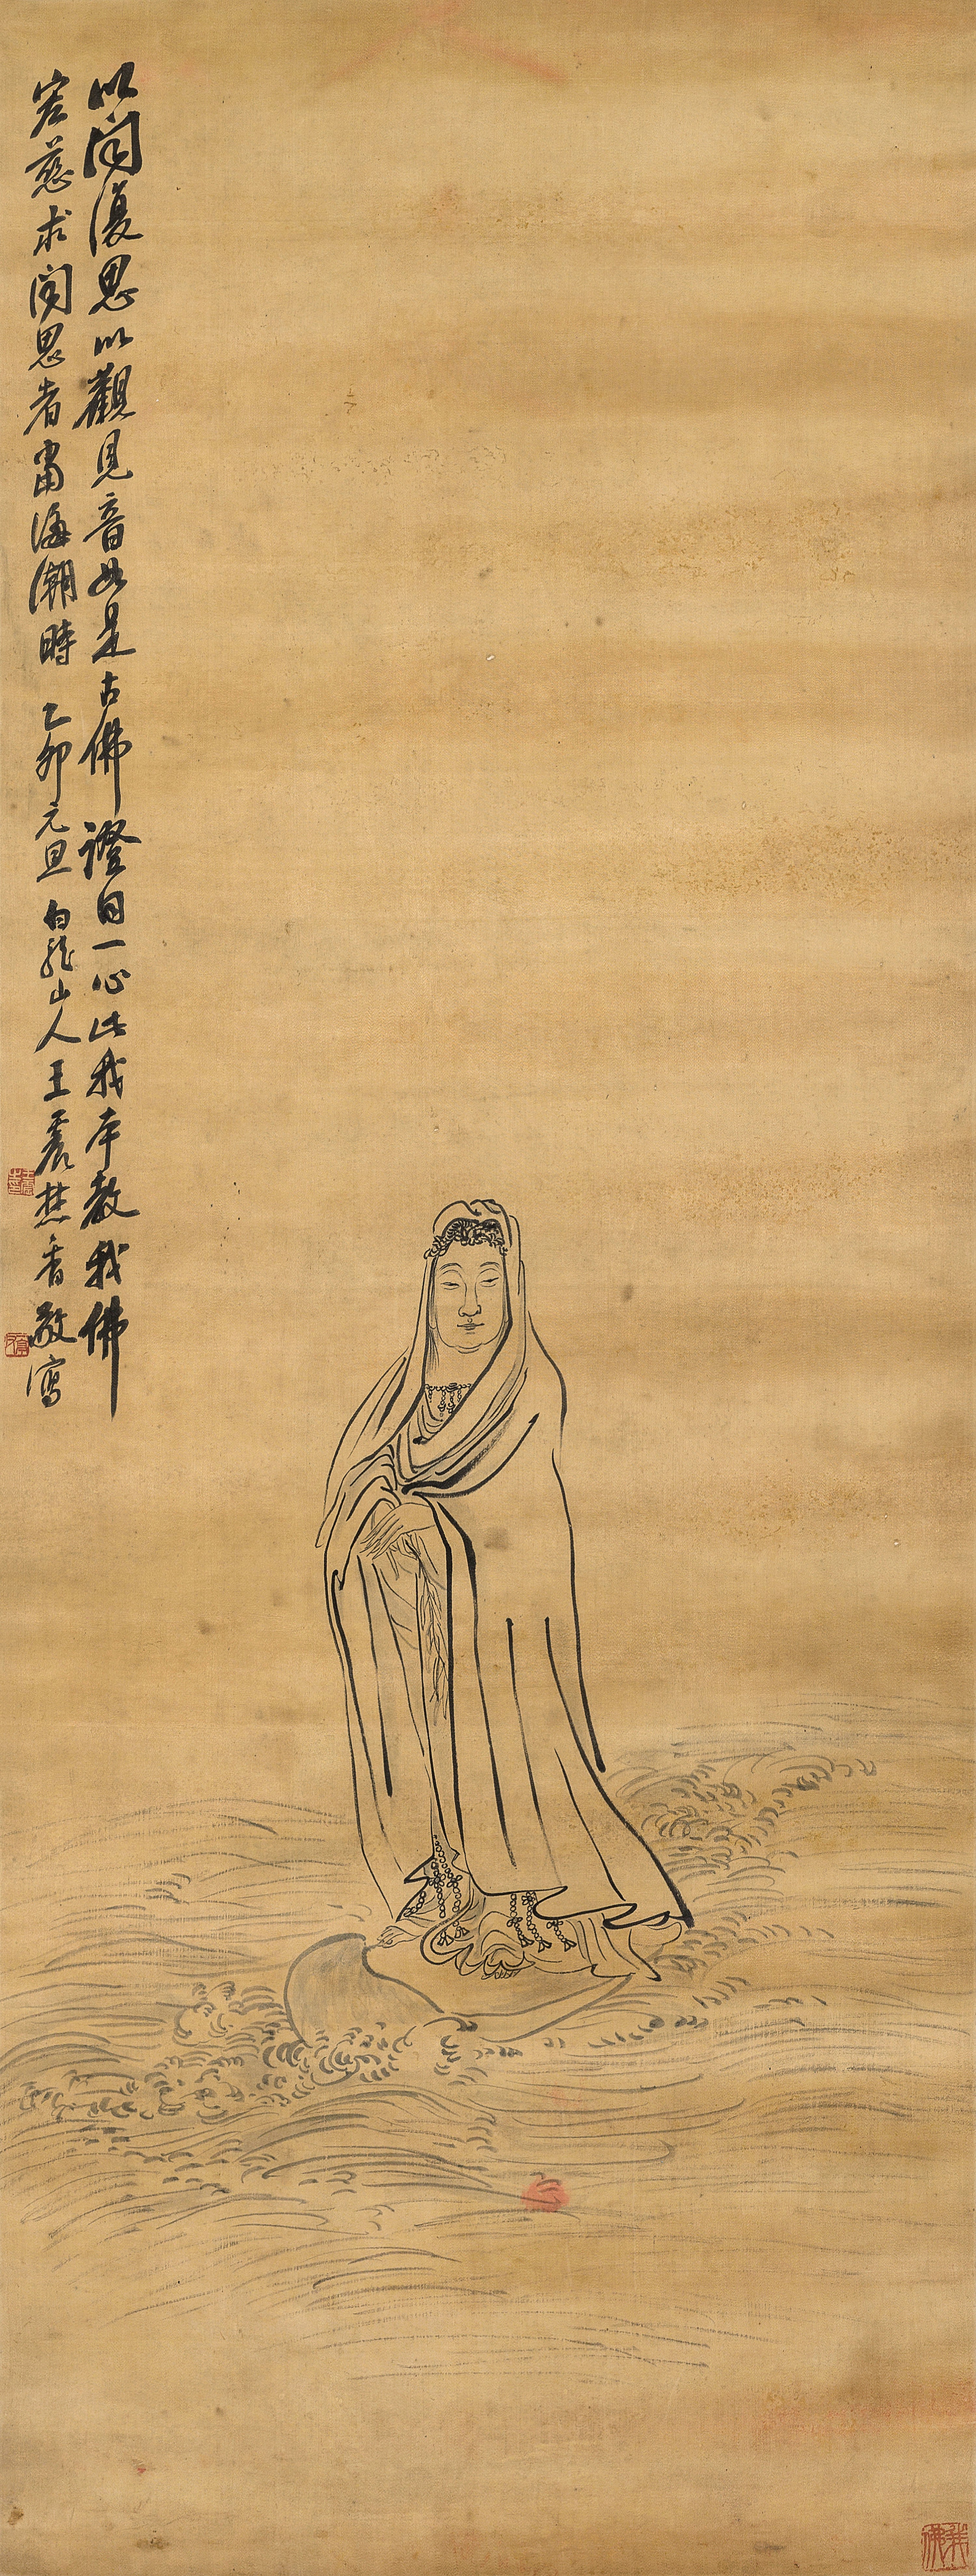 以聞復思以觀見音如是古佛證自一心此我本教我佛
宏慈求聞思者當海潮時 乙卯元旦 白龍山人王震焚香敬寫
我佛